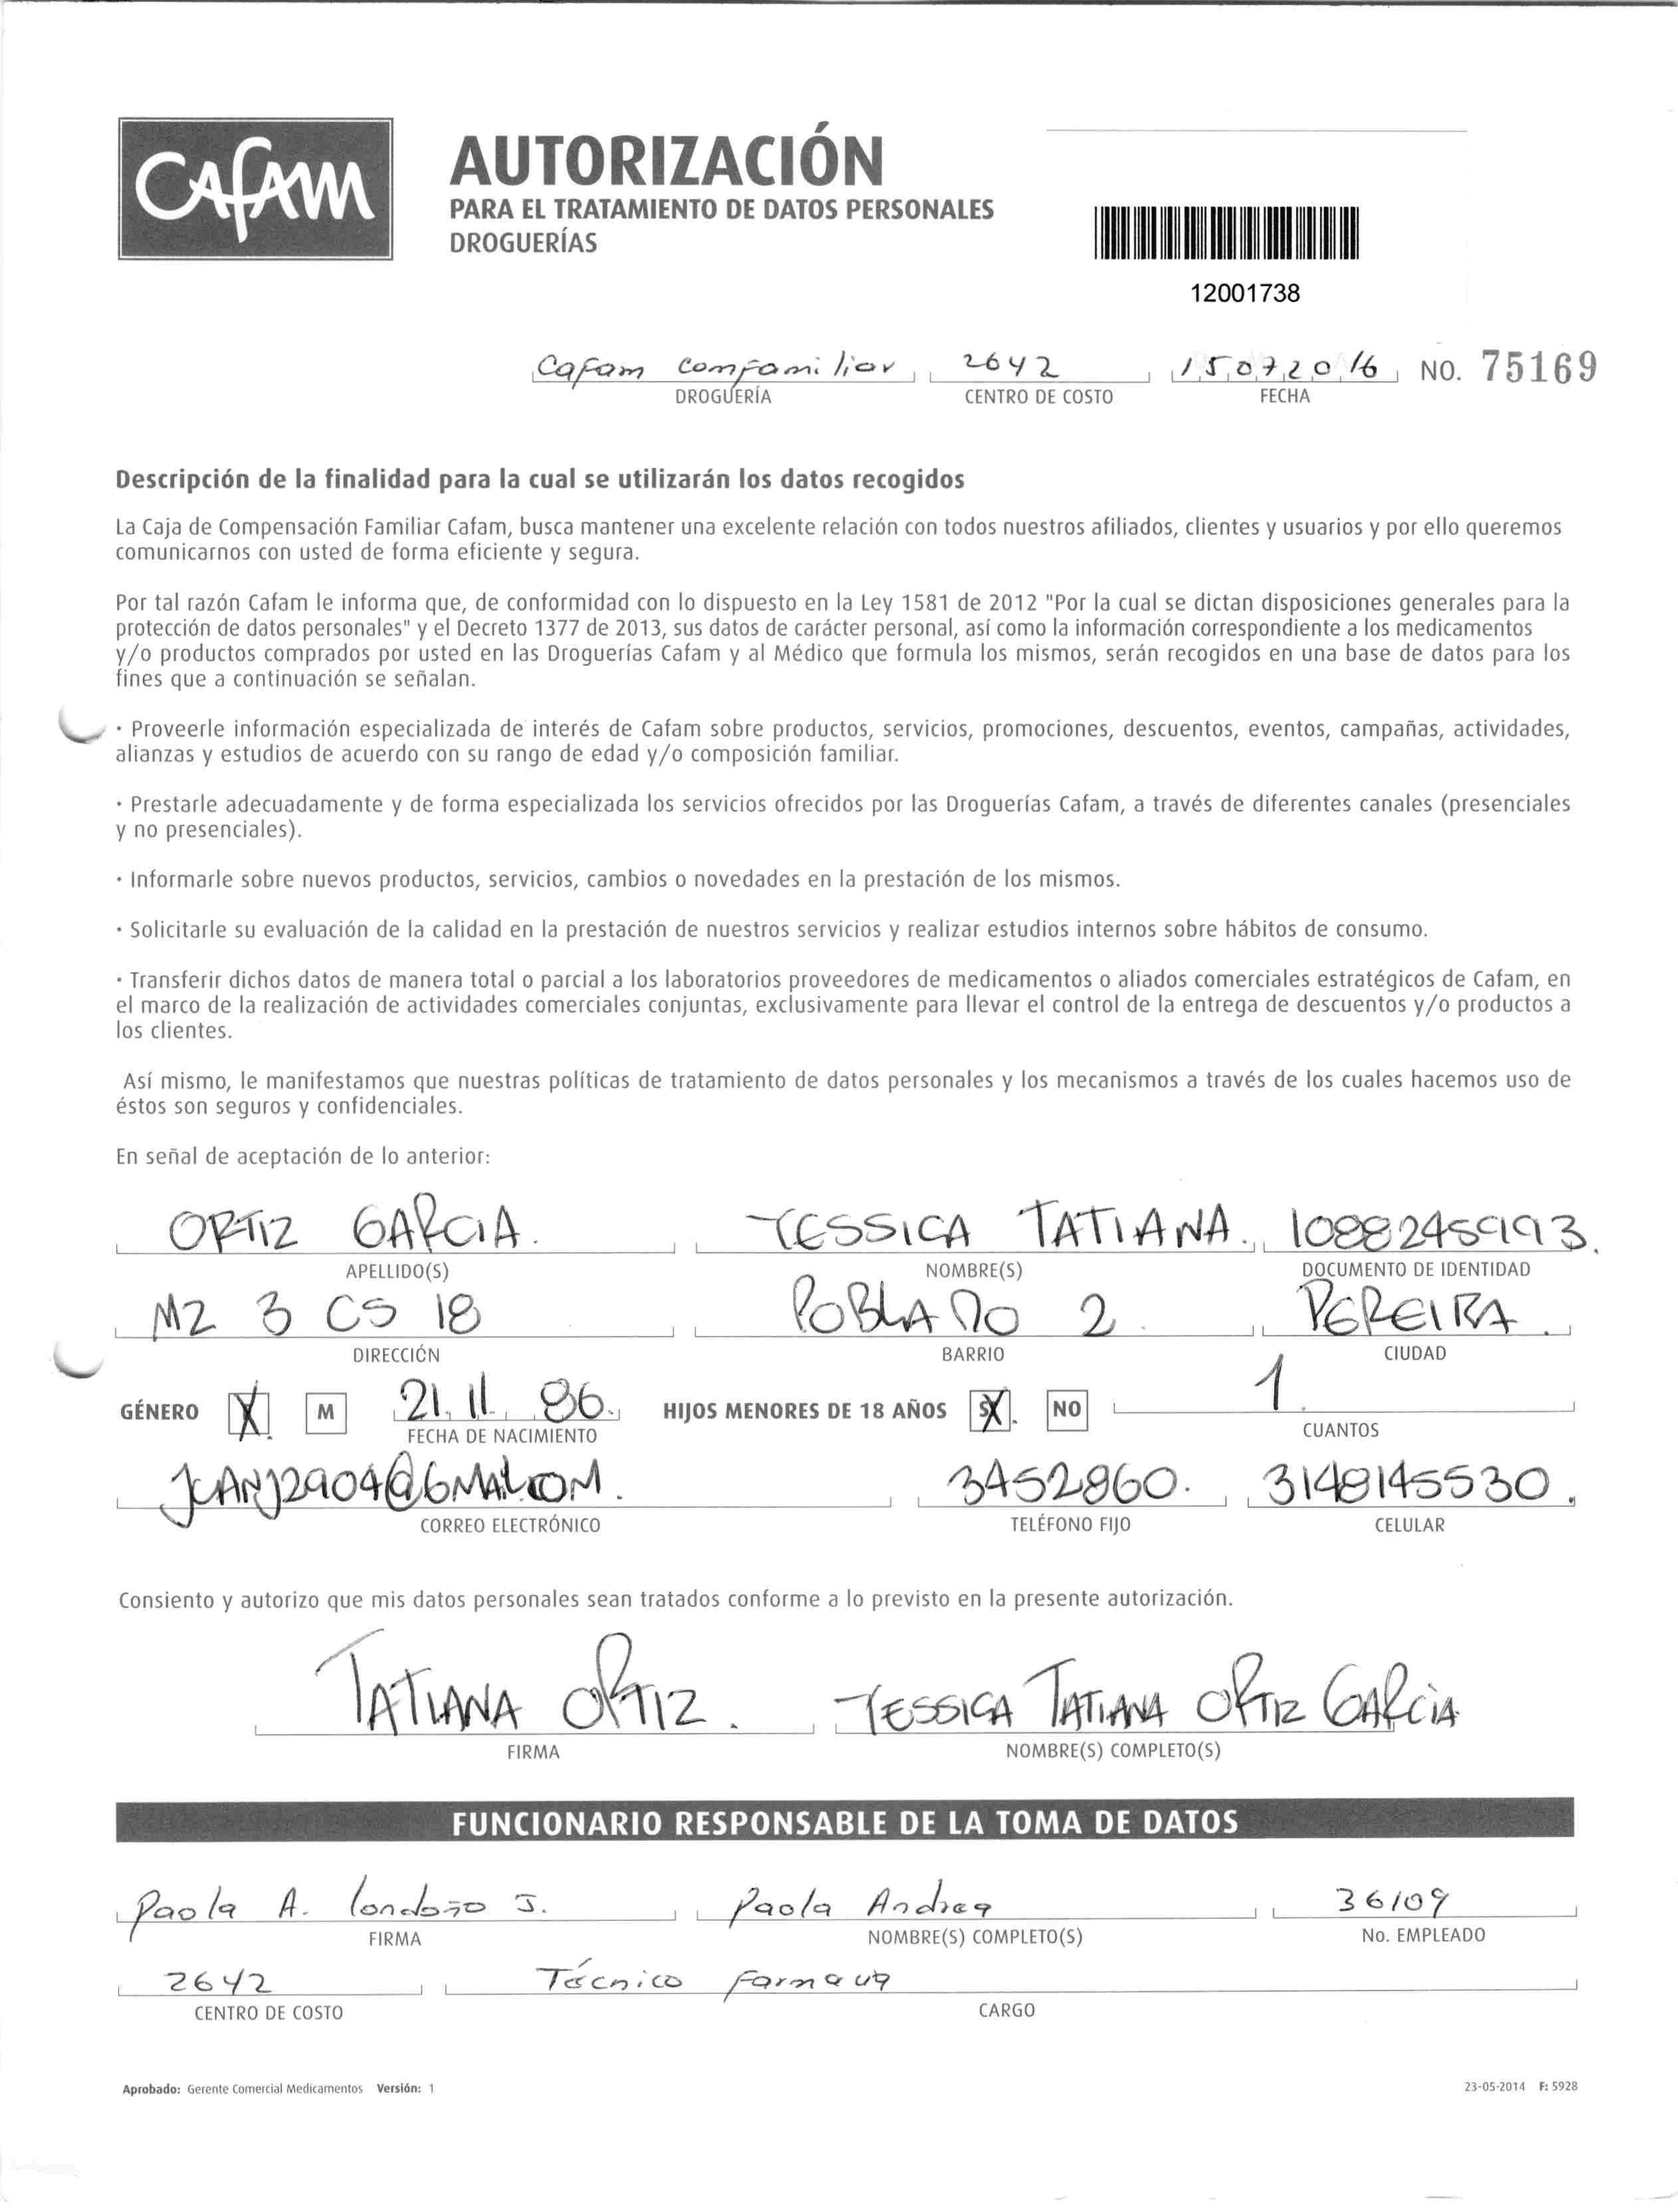 CAFAM
AUTORIZACIÓN
PARA EL TRATAMIENTO DE DATOS PERSONALES
DROGUERÍAS
12001738
Cafam Comfamiliar 2642 15072016 NO. 75169
DROGUERÍA CENTRO DE COSTO FECHA
Descripción de la finalidad para la cual se utilizarán los datos recogidos
La Caja de Compensación Familiar Cafam, busca mantener una excelente relación con todos nuestros afiliados, clientes y usuarios y por ello queremos
comunicarnos con usted de forma eficiente y segura.
Por tal razón Cafam le informa que, de conformidad con lo dispuesto en la Ley 1581 de 2012 "Por la cual se dictan disposiciones generales para la
protección de datos personales" y el Decreto 1377 de 2013, sus datos de carácter personal, así como la información correspondiente a los medicamentos
y/o productos comprados por usted en las Droguerías Cafam y al Médico que formula los mismos, serán recogidos en una base de datos para los
fines que a continuación se señalan.
· Proveerle información especializada de interés de Cafam sobre productos, servicios, promociones, descuentos, eventos, campañas, actividades,
alianzas y estudios de acuerdo con su rango de edad y/o composición familiar.
· Prestarle adecuadamente y de forma especializada los servicios ofrecidos por las Droguerías Cafam, a través de diferentes canales (presenciales
y no presenciales).
· Informarle sobre nuevos productos, servicios, cambios o novedades en la prestación de los mismos.
· Solicitarle su evaluación de la calidad en la prestación de nuestros servicios y realizar estudios internos sobre hábitos de consumo.
· Transferir dichos datos de manera total o parcial a los laboratorios proveedores de medicamentos o aliados comerciales estratégicos de Cafam, en
el marco de la realización de actividades comerciales conjuntas, exclusivamente para llevar el control de la entrega de descuentos y/o productos a
los clientes.
Así mismo, le manifestamos que nuestras políticas de tratamiento de datos personales y los mecanismos a través de los cuales hacemos uso de
éstos son seguros y confidenciales.
En señal de aceptación de lo anterior:
ORTIZ GARCIA. YESSICA TATIANA. 1088245993.
APELLIDO(S) NOMBRE(S) DOCUMENTO DE IDENTIDAD
MZ 3 CS 18 POBLADO 2. PEREIRA.
DIRECCIÓN BARRIO CIUDAD
GÉNERO X M 21. 11. 86. HIJOS MENORES DE 18 AÑOS SI X. NO 1.
FECHA DE NACIMIENTO CUANTOS
JUANJ2904@GMAIL.COM. 3452860. 3148145530.
CORREO ELECTRÓNICO TELÉFONO FIJO CELULAR
Consiento y autorizo que mis datos personales sean tratados conforme a lo previsto en la presente autorización.
TATIANA ORTIZ. YESSICA TATIANA ORTIZ GARCIA
FIRMA NOMBRE(S) COMPLETO(S)
FUNCIONARIO RESPONSABLE DE LA TOMA DE DATOS
Paola A. Londoño J. Paola Andrea 36109
FIRMA NOMBRE(S) COMPLETO(S) No. EMPLEADO
2642 Técnico
CENTRO DE COSTO CARGO
Aprobado: Gerente Comercial Medicamentos Versión: 1 23-05-2014 F: 5928